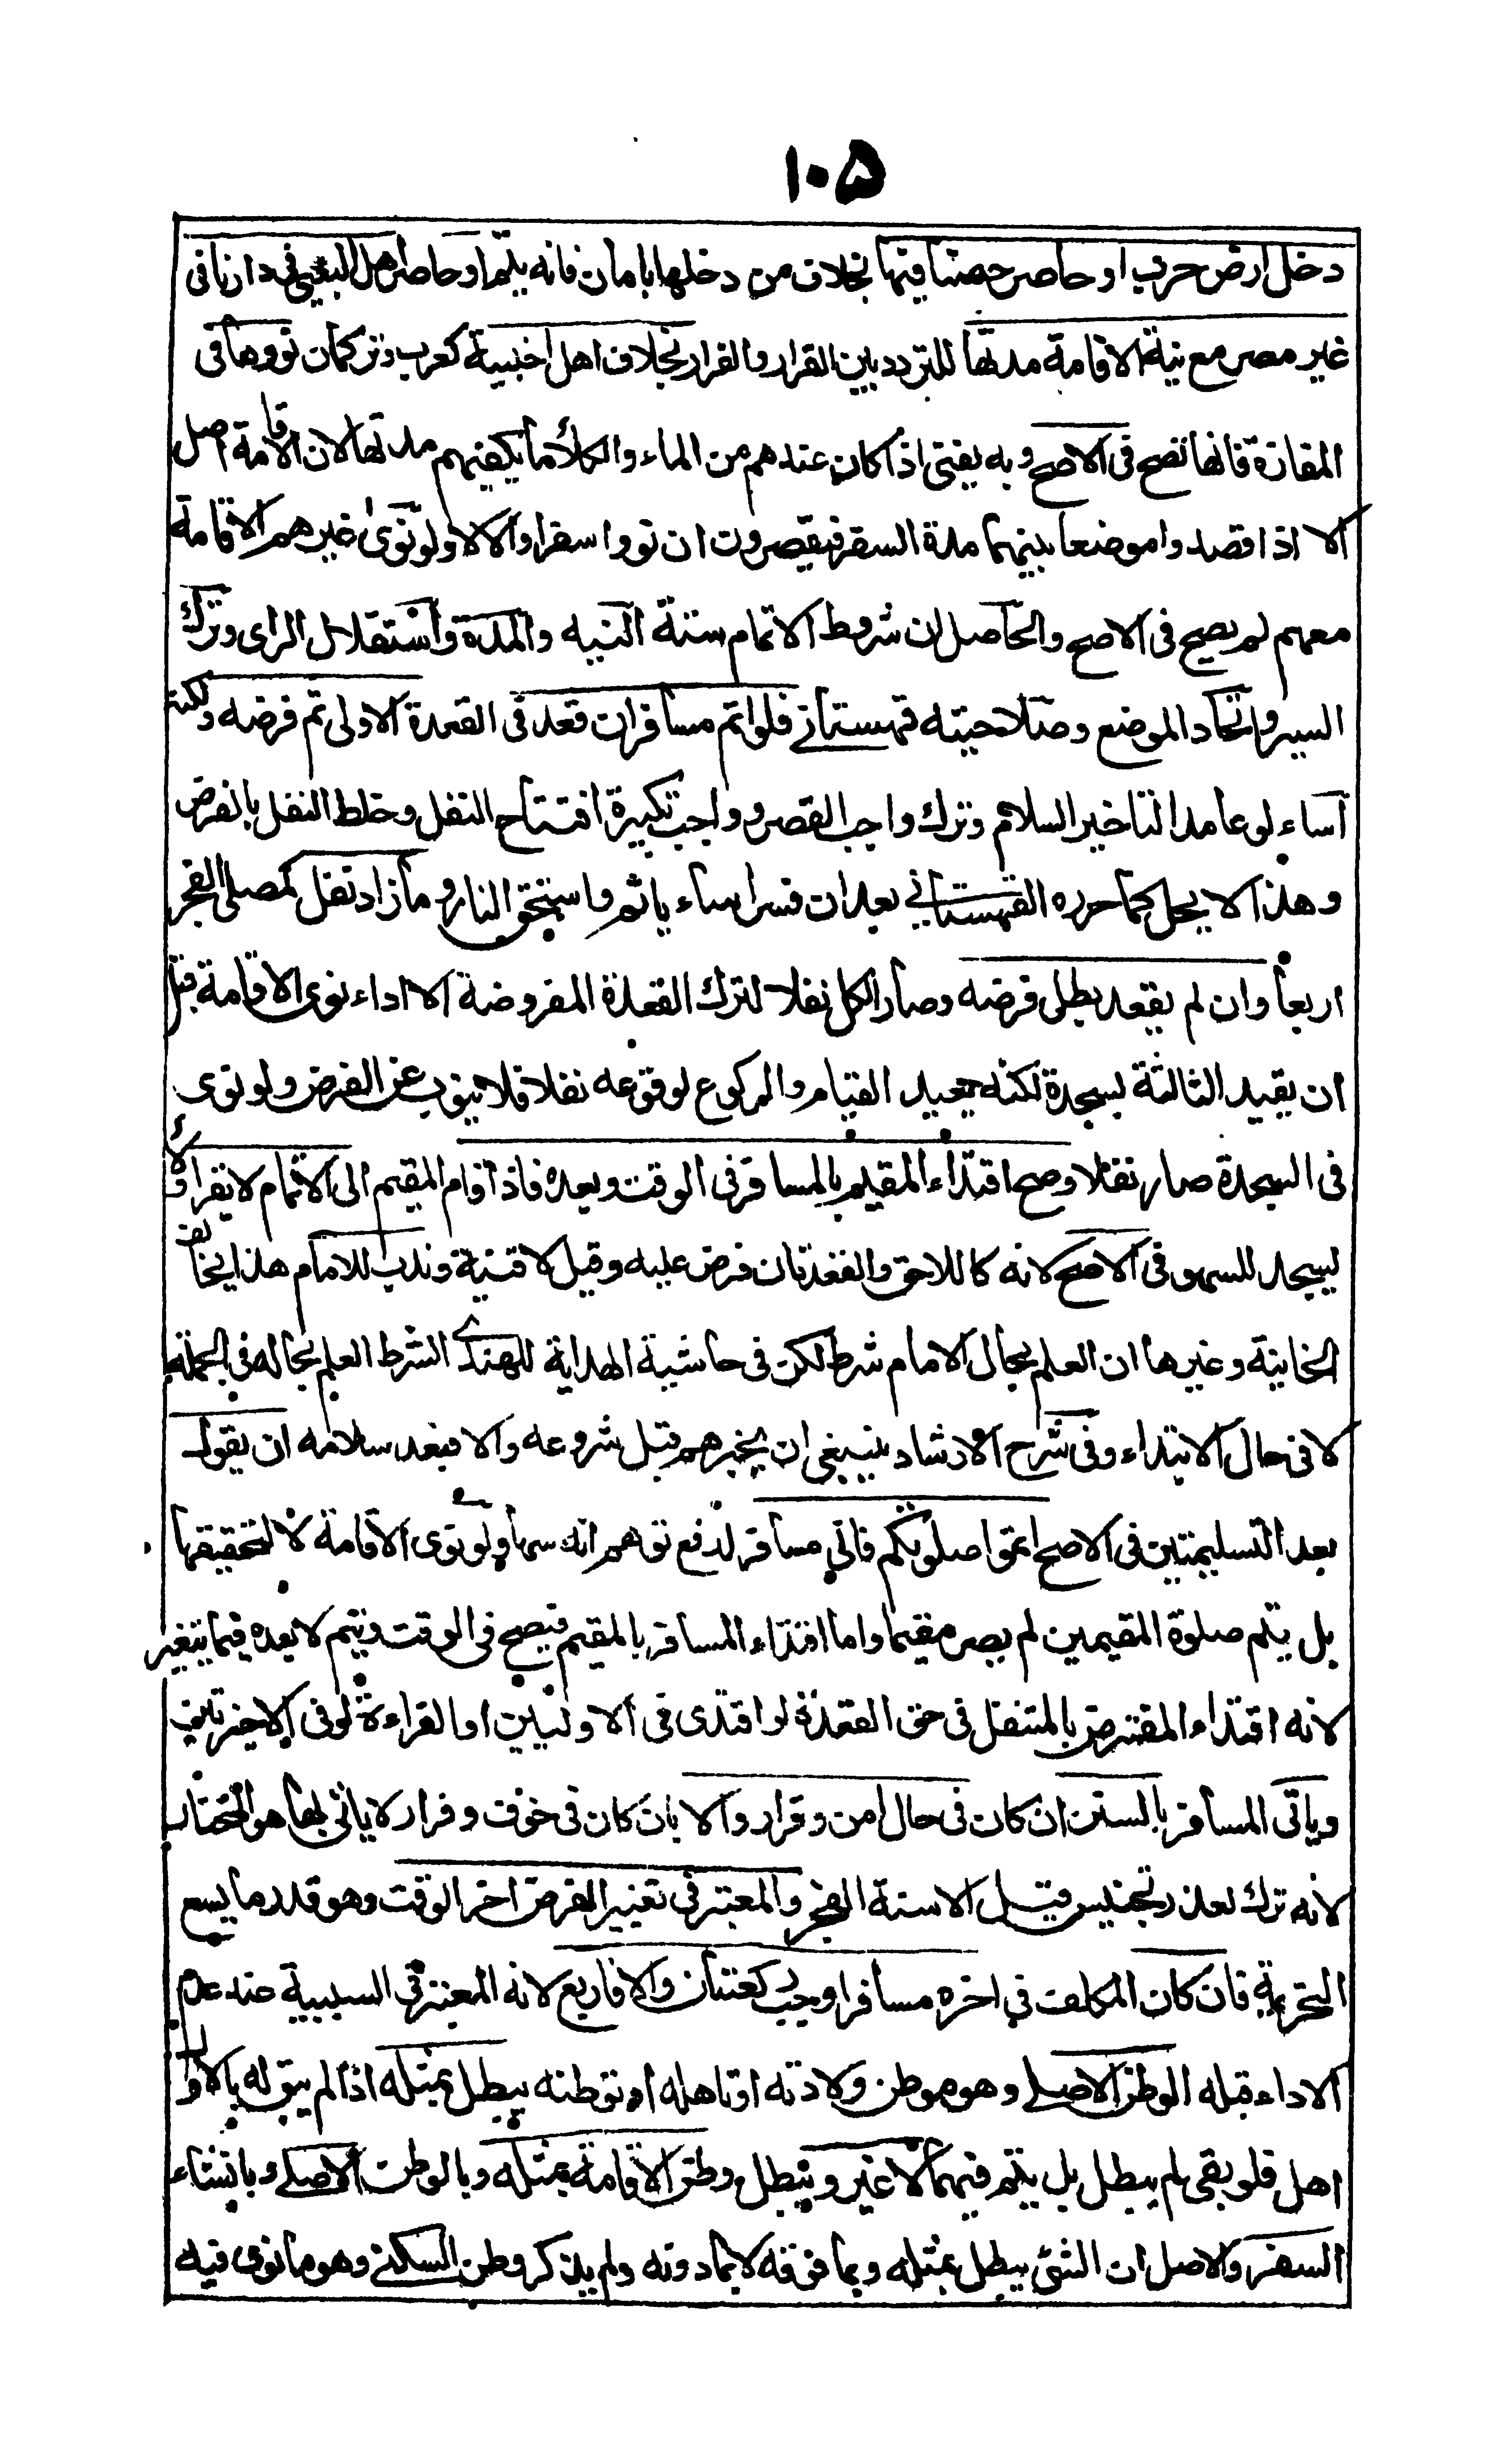 ١٠٥
دخل ارض حرب او حاصر حصنا فيها بخلاف من دخلها بامان فانه يتم او حاصر اهل البغي في دارنا في
غير مصر مع نية الاقامة مدتها للتردد بين القرار والفرار بخلاف اهل اخبية كعرب وتركمان نووها في
المفازة فانها تصح في الاصح وبه يفتى اذا كان عندهم من الماء والكلأ ما يكفيهم مدتها لان الاقامة اصل
الا اذا قصدوا موضعا بينهما مدة السفر فيقصرون ان نووا سفرا والا لا ولو نوى غيرهم الاقامة
معهم لم يصح في الاصح والحاصل ان شروط الاتمام ستة النية والمدة واستقلال الراى وترك
السير واتحاد الموضع وصلاحيته قهستاني فلو اتم مسافر ان قعد في القعدة الاولى تم فرضه ولكنه
اساء لو عامدا لتاخير السلام وترك واجب القصر وواجب تكبيرة افتتاح النفل وخلط النفل بالفرض
وهذا لا يحل كما حرره القهستاني بعد ان فسر اساء باثم واستحق النار وما زاد نفل كمصلى الفجر
اربعا وان لم يقعد بطل فرضه وصار الكل نفلا لترك القعدة المفروضة الا اذا نوى الاقامة قبل
ان يقيد الثالثة بسجدة لكنه يعيد القيام والركوع لوقوعه نفلا فلا ينوب عن الفرض ولو نوى
في السجدة صار نفلا وصح اقتداء المقيم بالمسافر في الوقت وبعده فاذا قام المقيم الى الاتمام لا يقرا ولا
يسجد للسهو في الاصح لانه كاللاحق والقعدتان فرض عليه وقيل لا قنية وندب للامام هذا يخالف
الخانية وغيرها ان العلم بحال الامام شرط لكن في حاشية الهداية للهندى الشرط العلم بحاله في الجملة
لا في حال الابتداء وفى شرح الارشاد ينبغي ان يخبرهم قبل شروعه والا فبعد سلامه ان يقول
بعد التسليمتين في الاصح اتموا صلوتكم فانى مسافر لدفع توهم انه سها ولو نوى الاقامة لا لتحقيقها
بل يتم صلوة المقيمين لم يصر مقيما واما اقتداء المسافر بالمقيم فيصح في الوقت ويتم لا بعده فيما يتغير
لانه اقتداء المفترض بالمتنفل في حق القعدة لو اقتدى في الاوليين او القراءة لو في الاخيرتين
وياتى المسافر بالسنن ان كان في حال امن وقرار والا بان كان في خوف وفرار لا ياتى بها هو المختار
لانه ترك لعذر تجنيس قيل الا سنة الفجر والمعتبر في تغيير الفرض اخر الوقت وهو قدر ما يسع
التحريمة فان كان المكلف في اخره مسافرا وجب ركعتان والا فاربع لانه المعتبر في السببية عند عدم
الاداء قبله الوطن الاصلي وهو موطن ولادته او تاهله او توطنه يبطل بمثله اذا لم يبق له بالاول
اهل فلو بقى لم يبطل بل يتم فيهما لا غير ويبطل وطن الاقامة بمثله وبالوطن الاصلي وبانشاء
السفر والاصل ان الشئ يبطل بمثله وبما فوقه لا بما دونه ولم يذكر وطن السكنى وهو ما نوى فيه